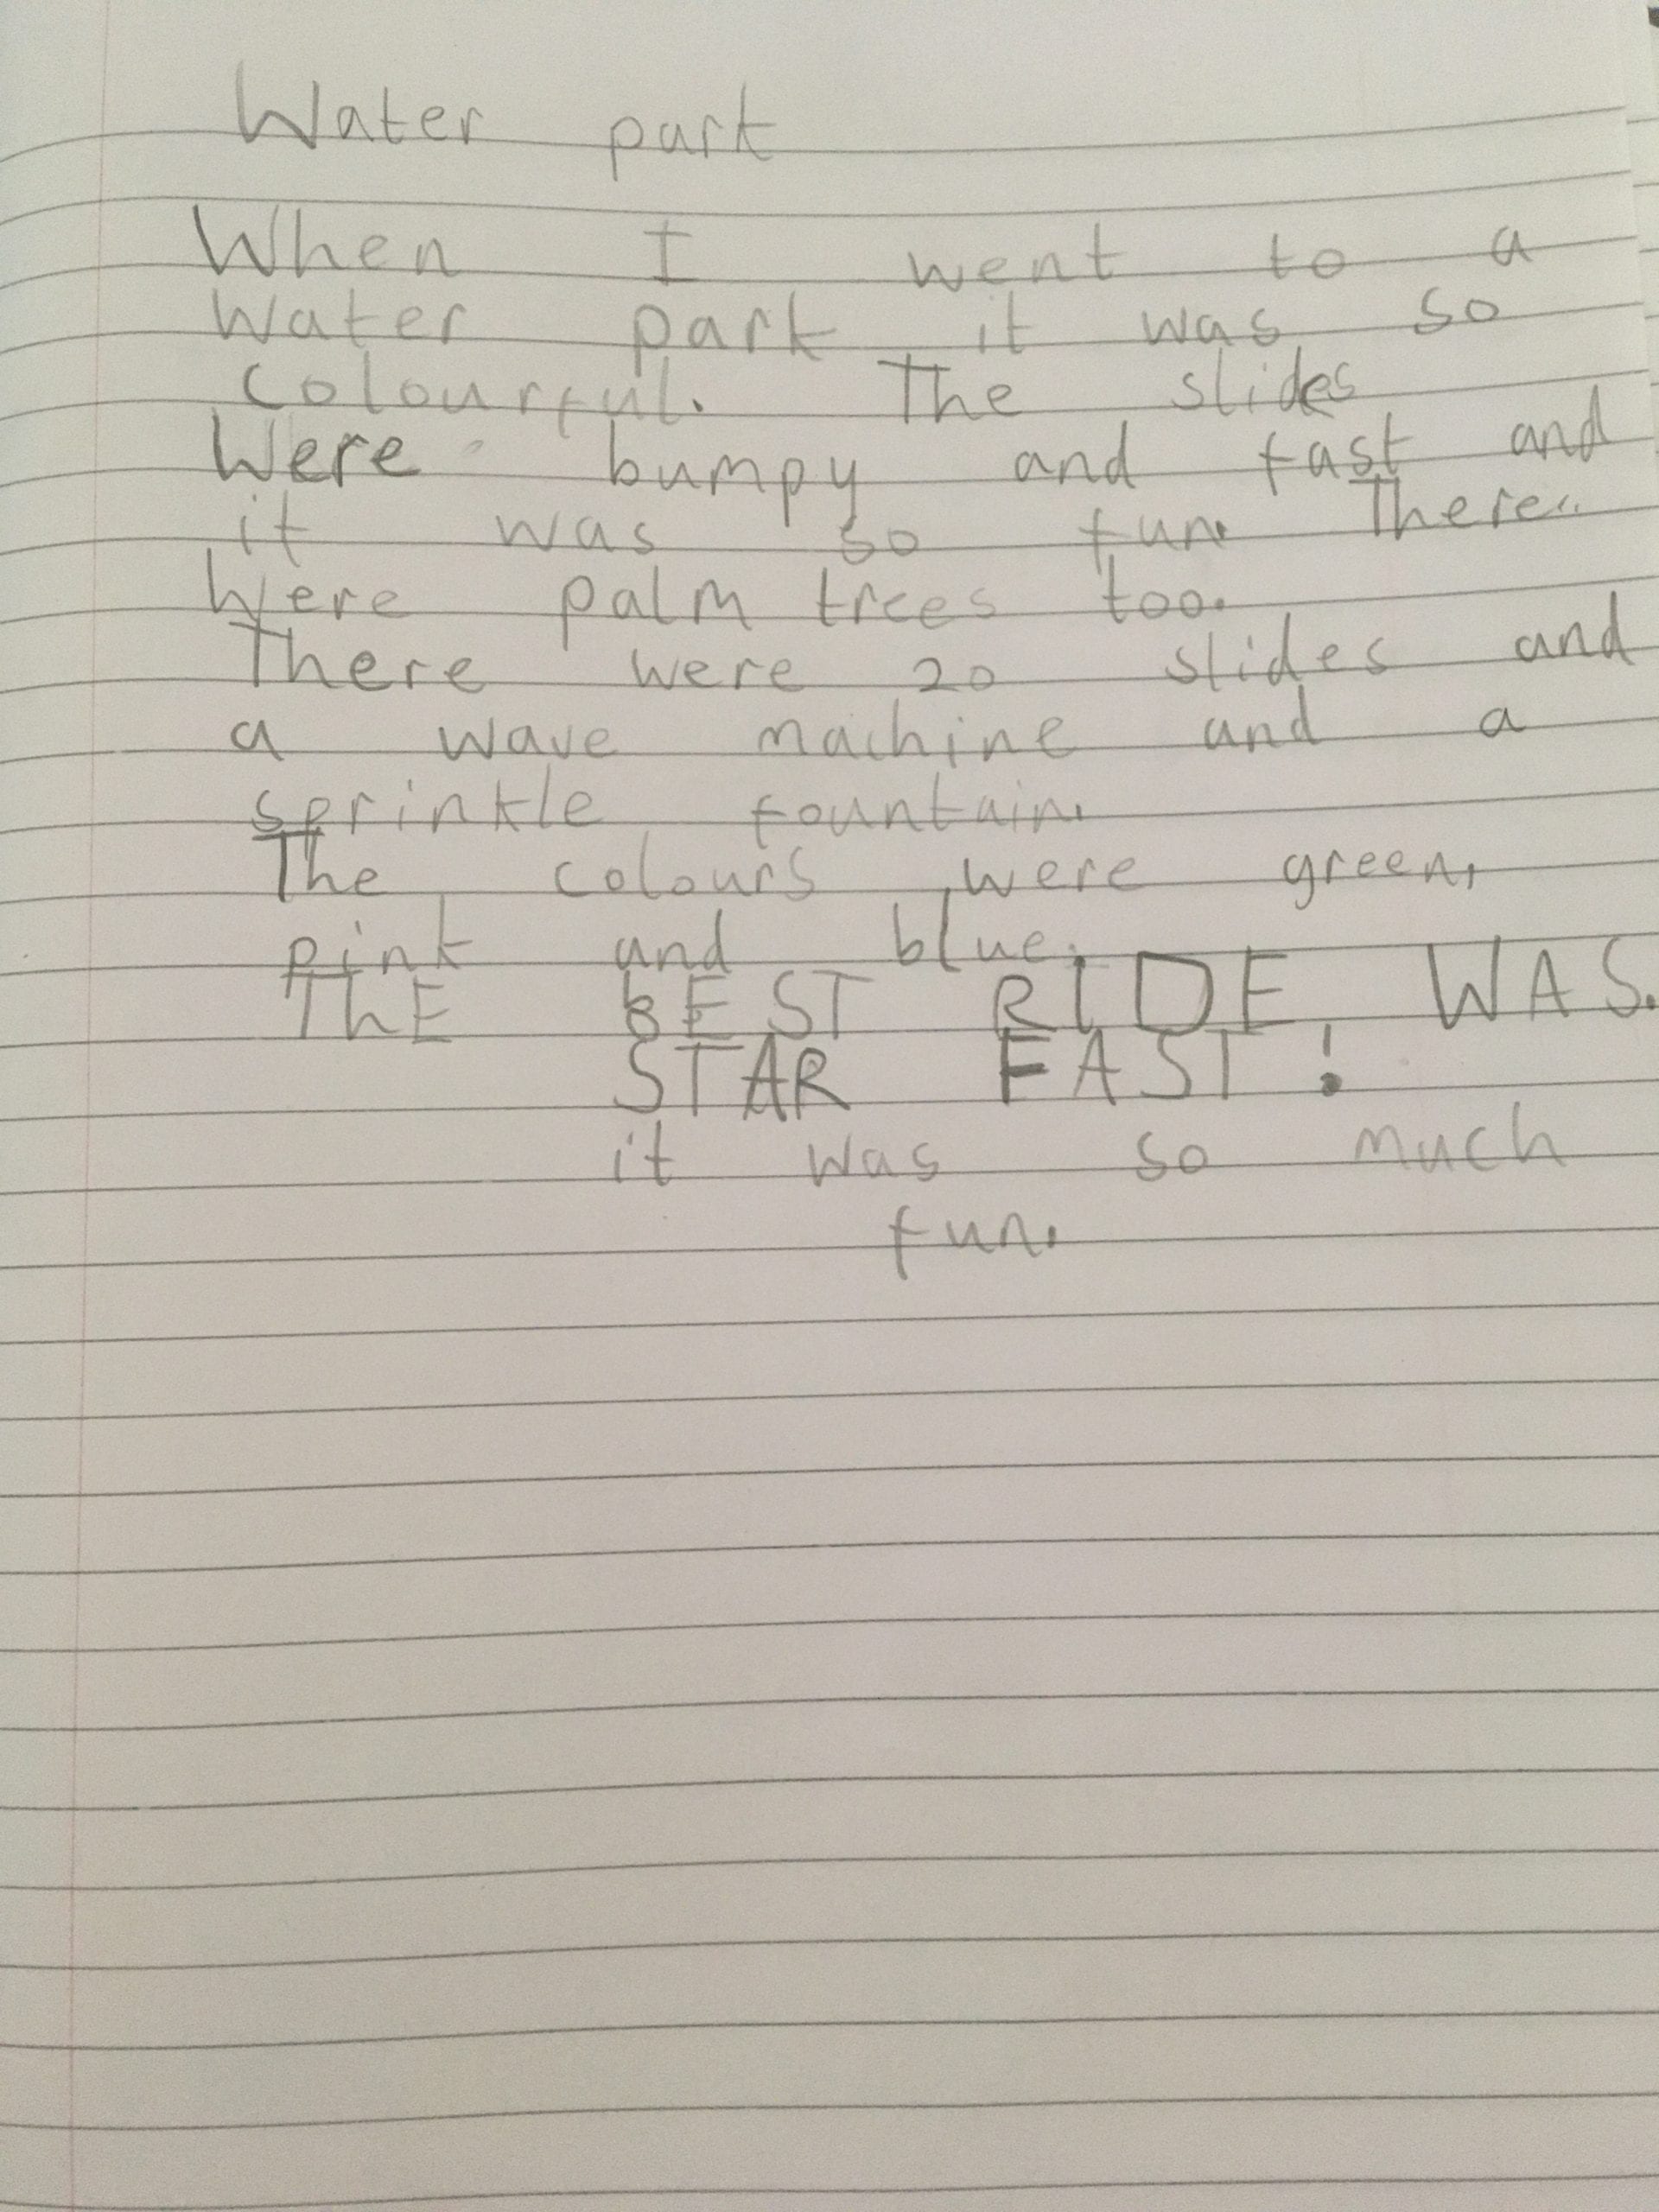 Water park
When I went to a
Water park it was so
colourful. The slides
Were bumpy and fast and
it was so fun. There..
Were palm trees too.
There were 20 slides and
a wave machine and a
sprinkle fountain.
The colours were green,
pink and blue.
ThE bEST RIDE WAS.
STAR FAST!
it was so much
fun.